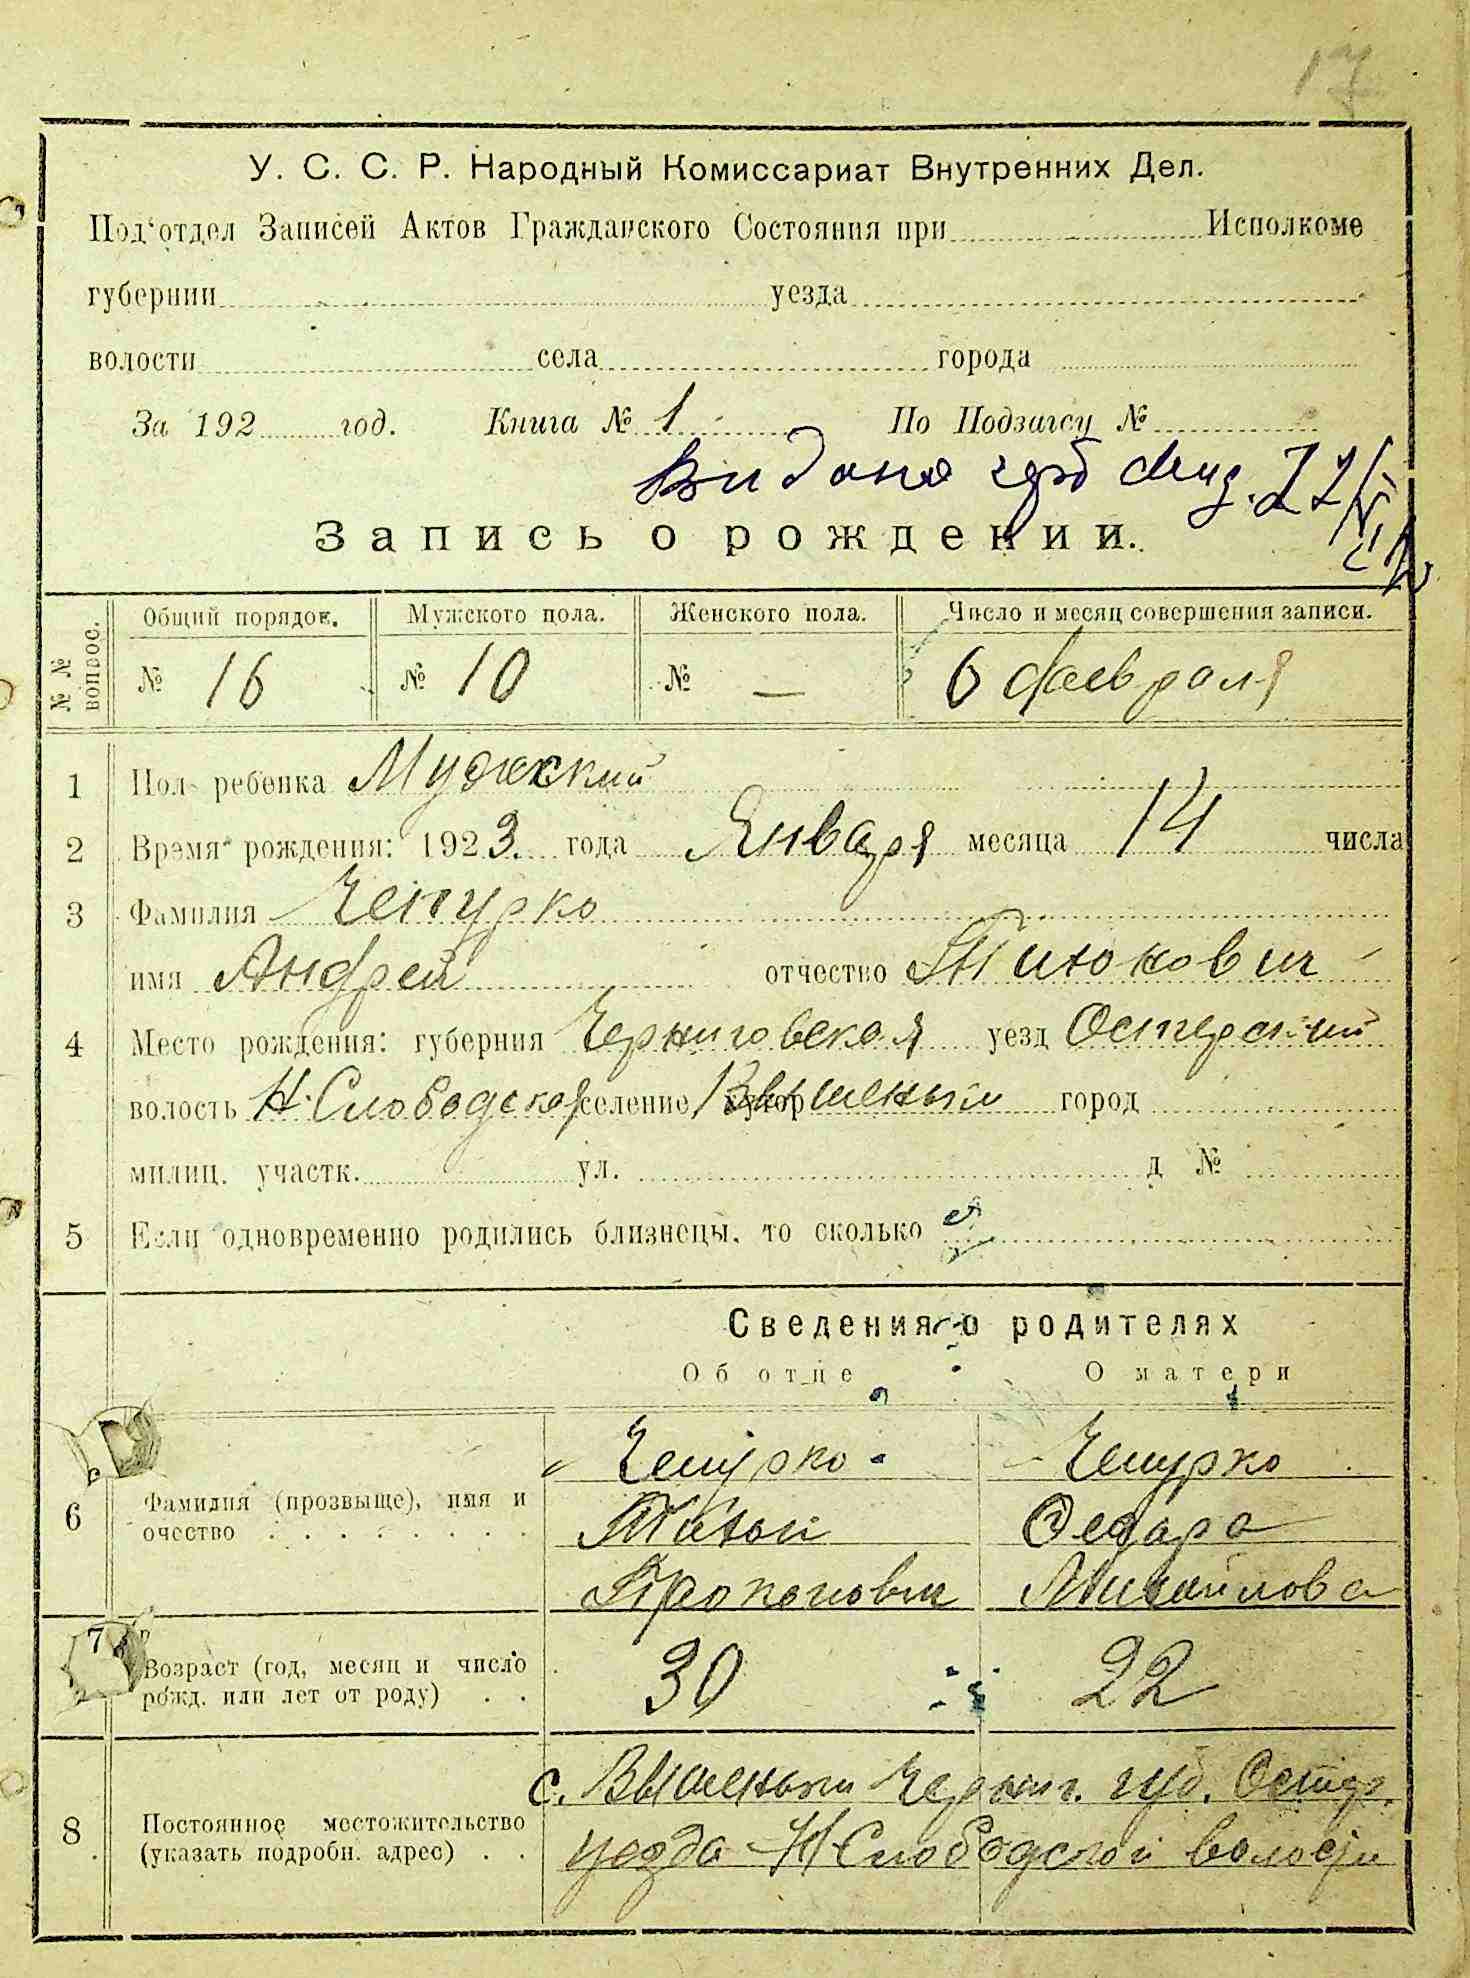 17
У. С. С. Р. Народный Комиссариат Внутренних Дел.
Под'отдел Записей Актов Гражданского Состояния при Исполкоме
губернии уезда
волости села города
За 192 год. Книга № 1 По Подзагсу №
Видана
Запись о рождении.
№ № вопрос. Общий порядок. Мужского пола. Женского пола. Число и месяц совершения записи.
№ 16 № 10 № — 6 февраля
1 Пол ребенка Мужский
2 Время рождения: 1923. года Января месяца 14 числа
3 Фамилия Чепурко
имя Андрей отчество
4 Место рождения: губерния Черниговская уезд Остерский
волость Н. Слободская селение хутор Вышеньки город
милиц. участк. ул. д №
5 Если одновременно родились близнецы, то сколько
Сведения о родителях
Об отце О матери
Чепурко Чепурко
6 Фамилия (прозвыще), имя и
очество
Михайлова
7 Возраст (год, месяц и число
рожд. или лет от роду) 30 22
с. Вышеньки Черниг. губ. Остер.
8 Постоянное местожительство
(указать подробн. адрес) уезда Н Слободской волости